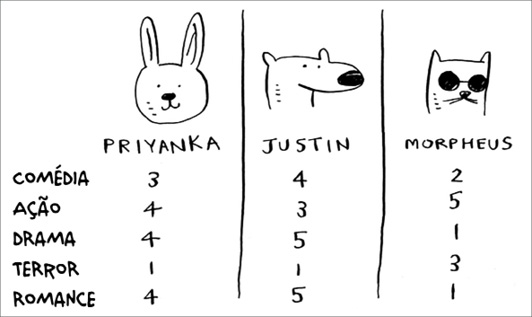 PRIYANKA JUSTIN MORPHEUS
COMÉDIA 3 4 2
AÇÃO 4 3 5
DRAMA 4 5 1
TERROR 1 1 3
ROMANCE 4 5 1